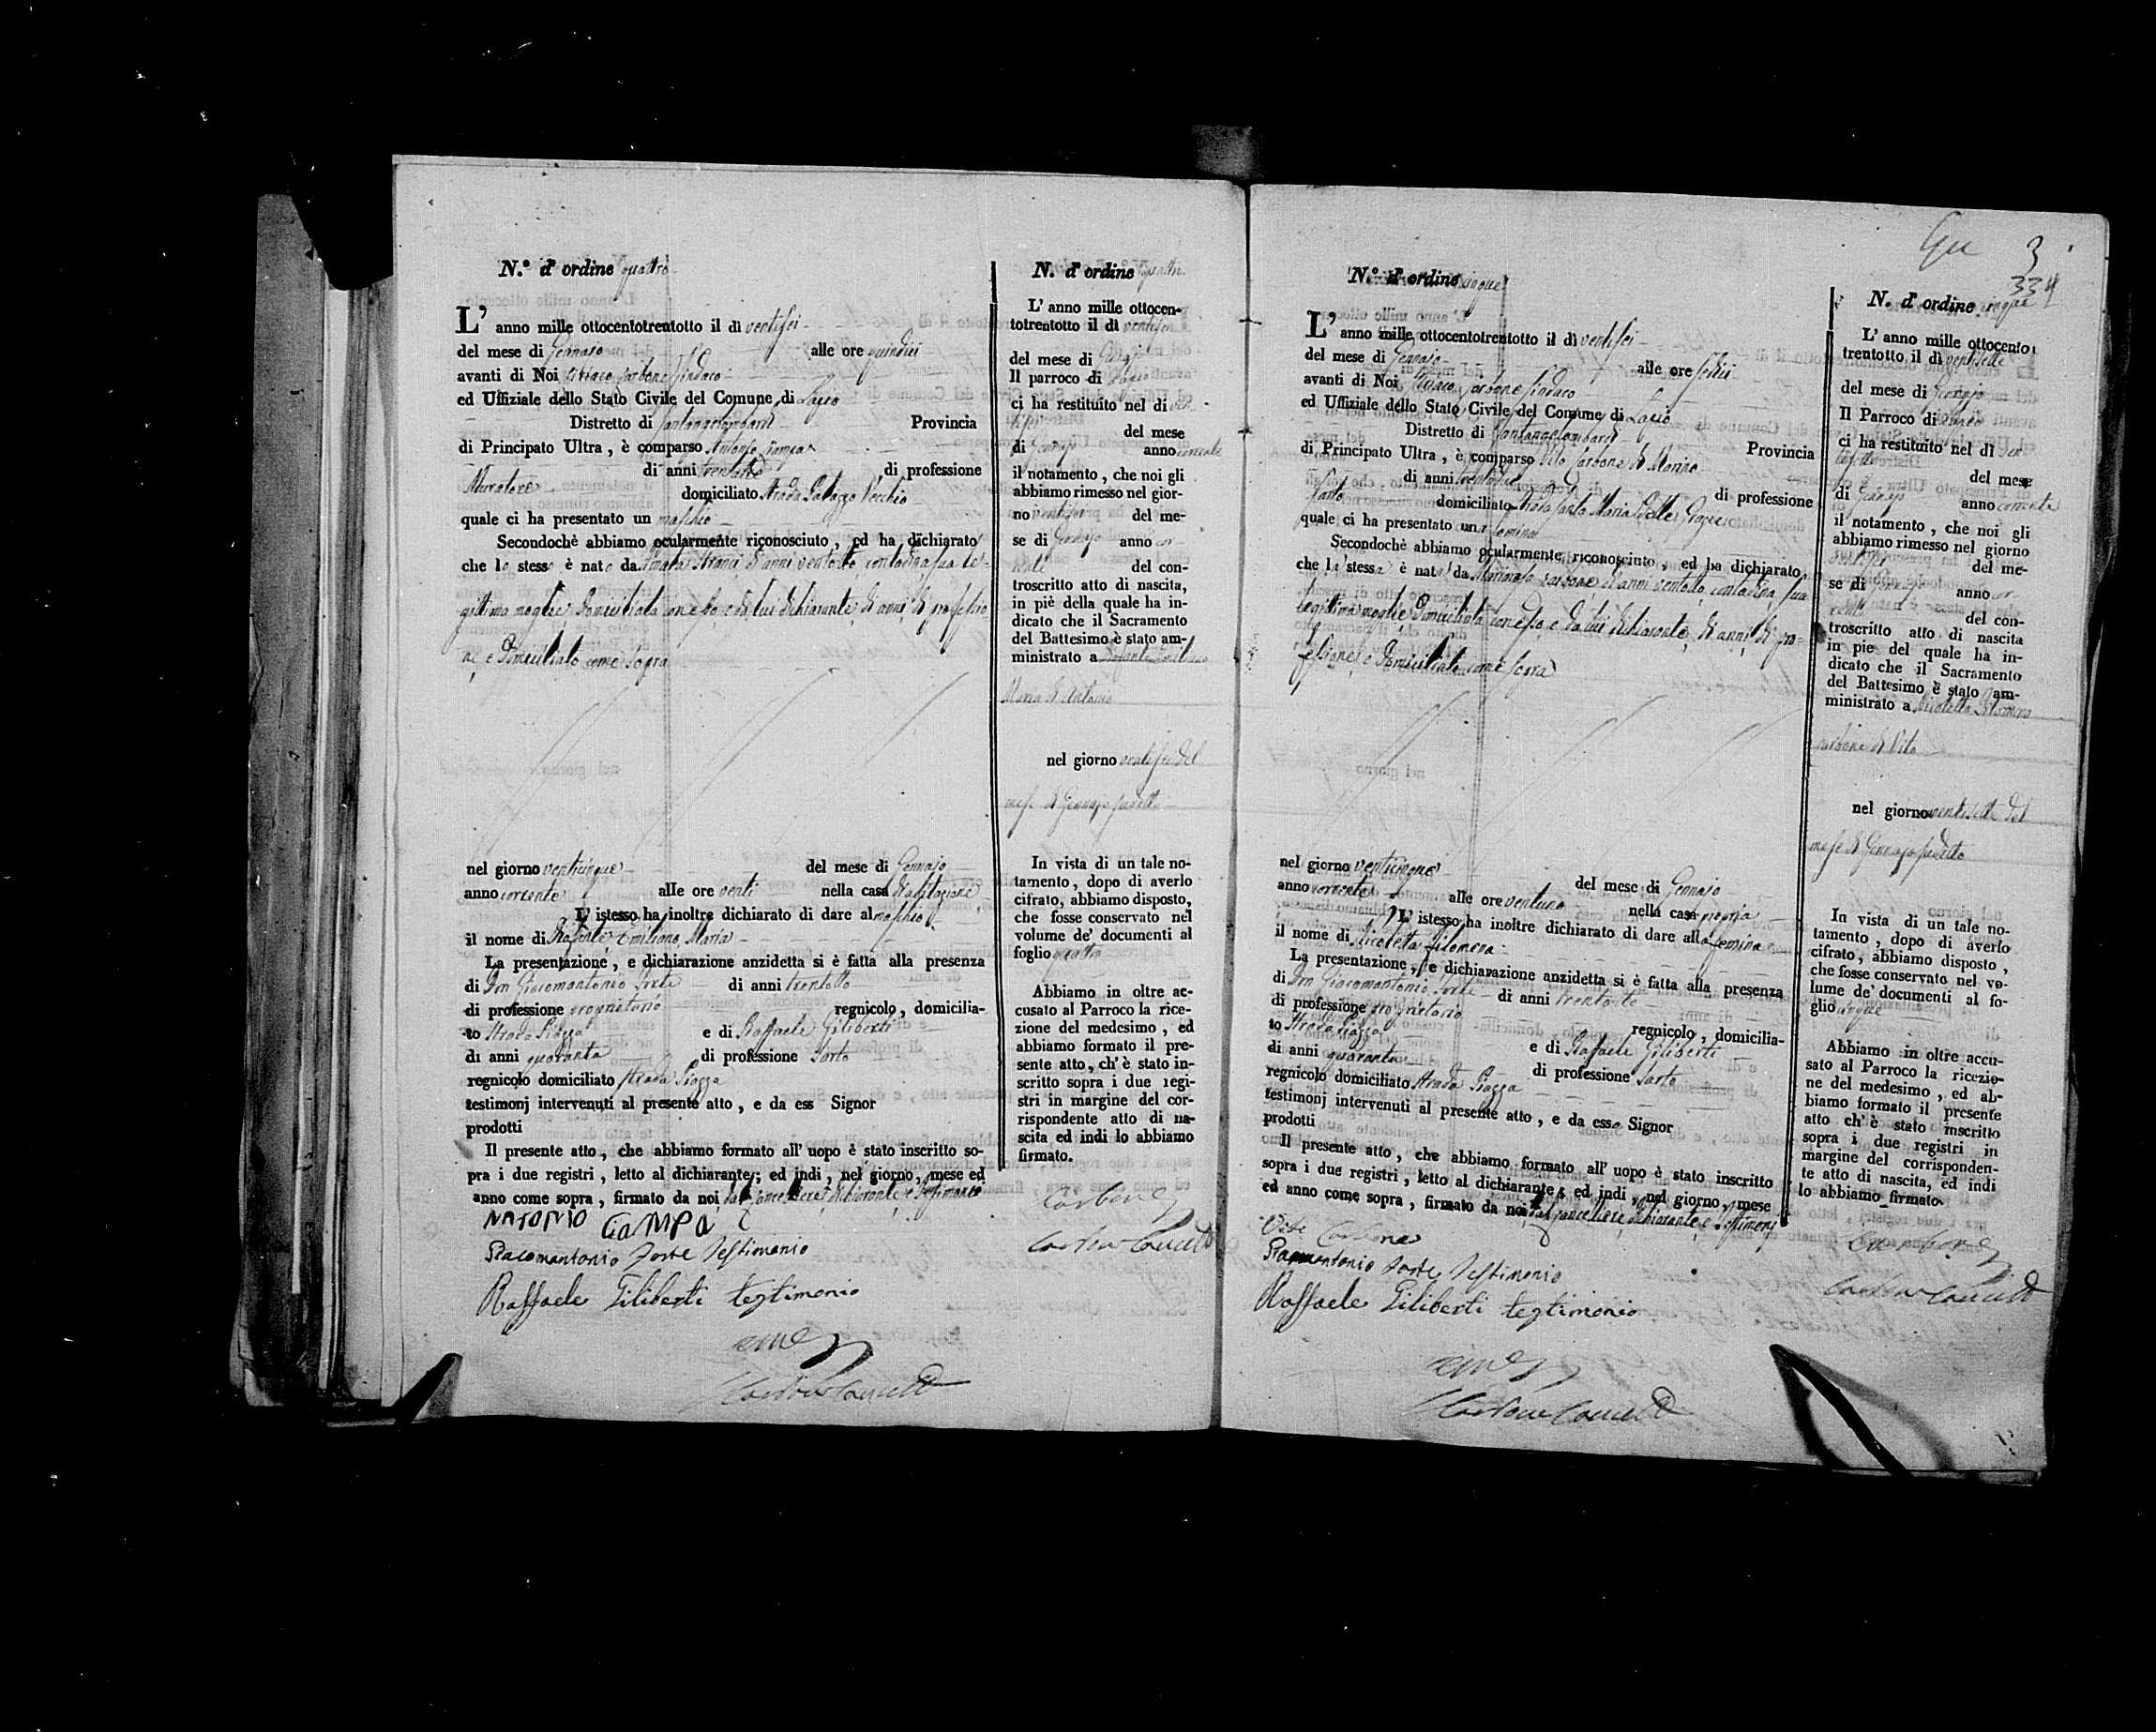 N.º d'ordine quattro
L' anno mille ottocentotrentotto il dì ventisei
del mese di Gennajo alle ore quindici
avanti di Noi Carbone Sindaco
ed Uffiziale dello Stato Civile del Comune di
Distretto di Santangelombardi Provincia
di Principato Ultra, è comparso Antonio Ciampa
di anni trentatre di professione
Muratore domiciliato Strada Palazzo Vecchio
quale ci ha presentato un maschio
Secondochè abbiamo ocularmente riconosciuto, ed ha dichiarato
che lo stesso è nato da Amata di anni ventotto contadina sua le-
gittima moglie domiciliata con esso e da lui dichiarante di anni di professio
ne, e domiciliato come sopra
nel giorno venticinque del mese di Gennajo
anno corrente alle ore venti nella casa di abitazione
L' istesso ha inoltre dichiarato di dare al maschio
il nome di Emiliano Maria
La presentazione, e dichiarazione anzidetta si è fatta alla presenza
di Don Giacomantonio Forte di anni trentotto
di professione proprietario regnicolo, domicilia-
to Strada Piazza e di Raffaele Giliberti
di anni quaranta di professione Sarto
regnicolo domiciliato Strada Piazza
testimonj intervenuti al presente atto, e da ess Signor
prodotti
Il presente atto, che abbiamo formato all' uopo è stato inscritto so-
pra i due registri, letto al dichiarante; ed indi, nel giorno, mese ed
anno come sopra, firmato da noi, dal Cancelliere, dichiarante, e testimoni
ANTONIO CIAMPA
Giacomantonio Forte Testimonio
Raffaele Giliberti testimonio
N. d'ordine quattro
L' anno mille ottocen-
totrentotto il dì ventisei
del mese di Gennajo
Il parroco di
ci ha restituito nel dì ven-
tisei del mese
di Gennajo anno corrente
il notamento, che noi gli
abbiamo rimesso nel gior-
no ventisei del me-
se di Gennajo anno cor-
rente del con-
troscritto atto di nascita,
in piè della quale ha in-
dicato che il Sacramento
del Battesimo è stato am-
ministrato a
Maria di Antonio
nel giorno ventisei del
mese di Gennajo suddetto
In vista di un tale no-
tamento, dopo di averlo
cifrato, abbiamo disposto,
che fosse conservato nel
volume de' documenti al
foglio quattro
Abbiamo in oltre ac-
cusato al Parroco la rice-
zione del medesimo, ed
abbiamo formato il pre-
sente atto, ch' è stato in-
scritto sopra i due regi-
stri in margine del cor-
rispondente atto di na-
scita ed indi lo abbiamo
firmato.
Carbone
3
334
N.º d'ordine cinque
L' anno mille ottocentotrentotto il dì ventisei
del mese di Gennajo alle ore sedici
avanti di Noi Carbone Sindaco
ed Uffiziale dello Stato Civile del Comune di
Distretto di Santangelombardi Provincia
di Principato Ultra, è comparso Vito Carbone di
di anni di professione
Sarto domiciliato Strada Santa Maria delle Grazie
quale ci ha presentato una femina
Secondochè abbiamo ocularmente riconosciuto, ed ha dichiarato
che la stessa è nata da Carbone di anni ventotto contadina sua
legittima moglie domiciliata con esso e da lui dichiarante di anni di pro-
fessione, e domiciliato come sopra
nel giorno venticinque del mese di Gennajo
anno corrente alle ore ventuno nella casa propria
L' istesso ha inoltre dichiarato di dare alla femina
il nome di Nicoletta Filomena
La presentazione, e dichiarazione anzidetta si è fatta alla presenza
di Don Giacomantonio Forte di anni trentotto
di professione proprietario regnicolo, domicilia-
to Strada Piazza e di Raffaele Giliberti
di anni quaranta di professione Sarto
regnicolo domiciliato Strada Piazza
testimonj intervenuti al presente atto, e da esso Signor
prodotti
Il presente atto, che abbiamo formato all' uopo è stato inscritto
sopra i due registri, letto al dichiarante; ed indi, nel giorno, mese
ed anno come sopra, firmato da noi, dal Cancelliere, dichiarante, e testimoni
Vito Carbone
Giacomantonio Forte Testimonio
Raffaele Giliberti testimonio
N. d'ordine cinque
L' anno mille ottocento
trentotto il dì ventisette
del mese di Gennajo
Il Parroco di
ci ha restituito nel dì ven
tisette del mese
di Gennajo anno corrente
il notamento, che noi gli
abbiamo rimesso nel giorno
ventisei del me-
se di Gennajo anno cor
rente del con-
troscritto atto di nascita
in pie del quale ha in-
dicato che il Sacramento
del Battesimo è stato am-
ministrato a Nicoletta Filomena
Carbone di Vito
nel giorno ventisette del
mese di Gennajo suddetto
In vista di un tale no-
tamento, dopo di averlo
cifrato, abbiamo disposto,
che fosse conservato nel vo-
lume de' documenti al fo-
glio cinque
Abbiamo in oltre accu-
sato al Parroco la ricezio-
ne del medesimo, ed ab-
biamo formato il presente
atto ch' è stato inscritto
sopra i due registri in
margine del corrisponden-
te atto di nascita, ed indi
lo abbiamo firmato.
Carbone